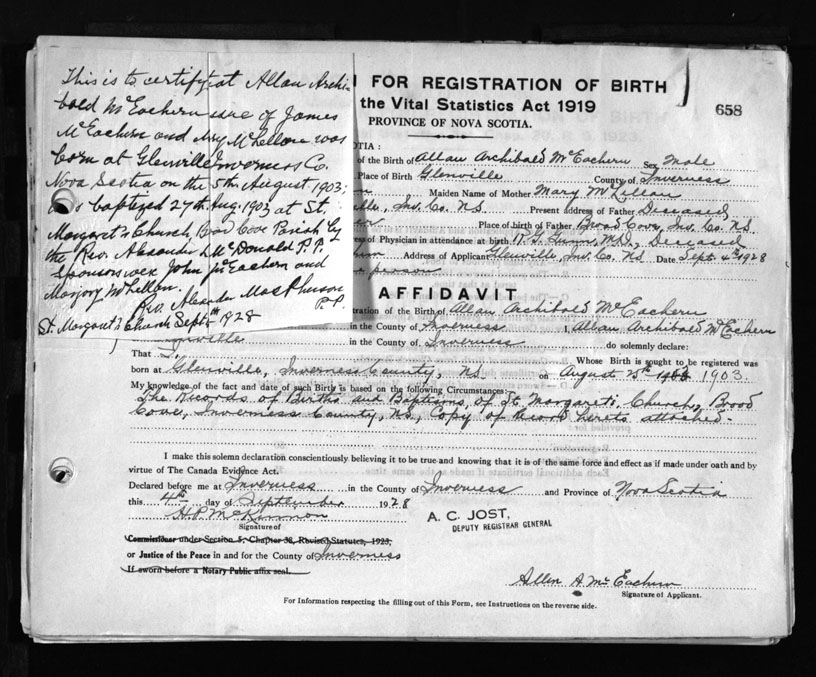 This is to certify at Allan Archi-
bald McEachern
of James
McEachern and Mary McLellan was
born at Glenville Inverness Co.
Nova Scotia on the 5th August 1903;
was baptized 27th Aug. 1903 at St.
Margaret's Church, Broad Cove Parish by
the Rev. Alexander L McDonald P.P.
Sponsors were John McEachern and
Marjory McLellan.
Rev. Alexander MacPherson
P.P.
St. Margaret's Church Sept 4th 1928
FOR REGISTRATION OF BIRTH
the Vital Statistics Act 1919
PROVINCE OF NOVA SCOTIA.
658
OTIA :
of the Birth of Allan Archibald McEachern Sex Male
Place of Birth Glenville County of Inverness
Maiden Name of Mother Mary McLellan
ville, Inv. Co. N.S Present address of Father Deceased
Place of birth of Father Broad Cove, Inv. Co. N.S.
ess of Physician in attendance at birth Gunn, M.D., Deceased
Address of Applicant Glenville, Inv. Co. N.S Date Sept. 4th 1928
person
AFFIDAVIT
tration of the Birth of Allan Archibald McEachern
in the County of Inverness I, Allan Archibald McEachern
Glenville in the County of Inverness do solemnly declare:
That I, Whose Birth is sought to be registered was
born at Glenville, Inverness County, N.S on August 5th 1903.
My knowledge of the fact and date of such Birth is based on the following Circumstances:
The Records of Births and Baptisms, of St. Margaret's Church, Broad
Cove, Inverness County, N.S, Copy of Record hereto attached.
I make this solemn declaration conscientiously believing it to be true and knowing that it is of the same force and effect as if made under oath and by
virtue of The Canada Evidence Act.
Declared before me at Inverness in the County of Inverness and Province of Nova Scotia
this 4th day of September 1928
H.P. McKinnon
A. C. JOST,
DEPUTY REGISTRAR GENERAL
Signature of
Commissioner under Section 5, Chapter 38, Revised Statutes, 1923,
or Justice of the Peace in and for the County of Inverness
If sworn before a Notary Public affix seal.
Allan A. McEachern
Signature of Applicant.
For Information respecting the filling out of this Form, see Instructions on the reverse side.